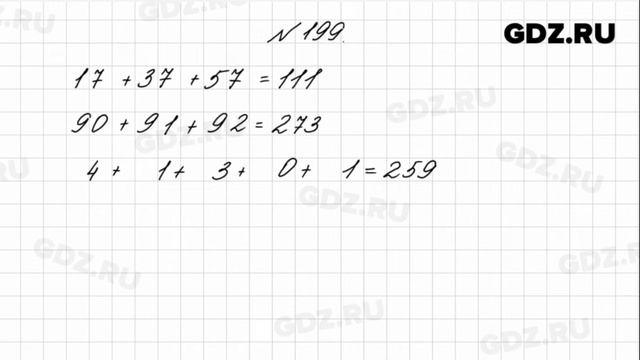 №199.
GDZ.RU
17 + 37 + 57 = 111
90 + 91 + 92 = 273
4 + 1 + 3 + 0 + 1 = 259
GDZ.RU
GDZ.RU
GDZ.RU
GDZ.RU
GDZ.RU
GDZ.RU
GDZ.RU
GDZ.RU